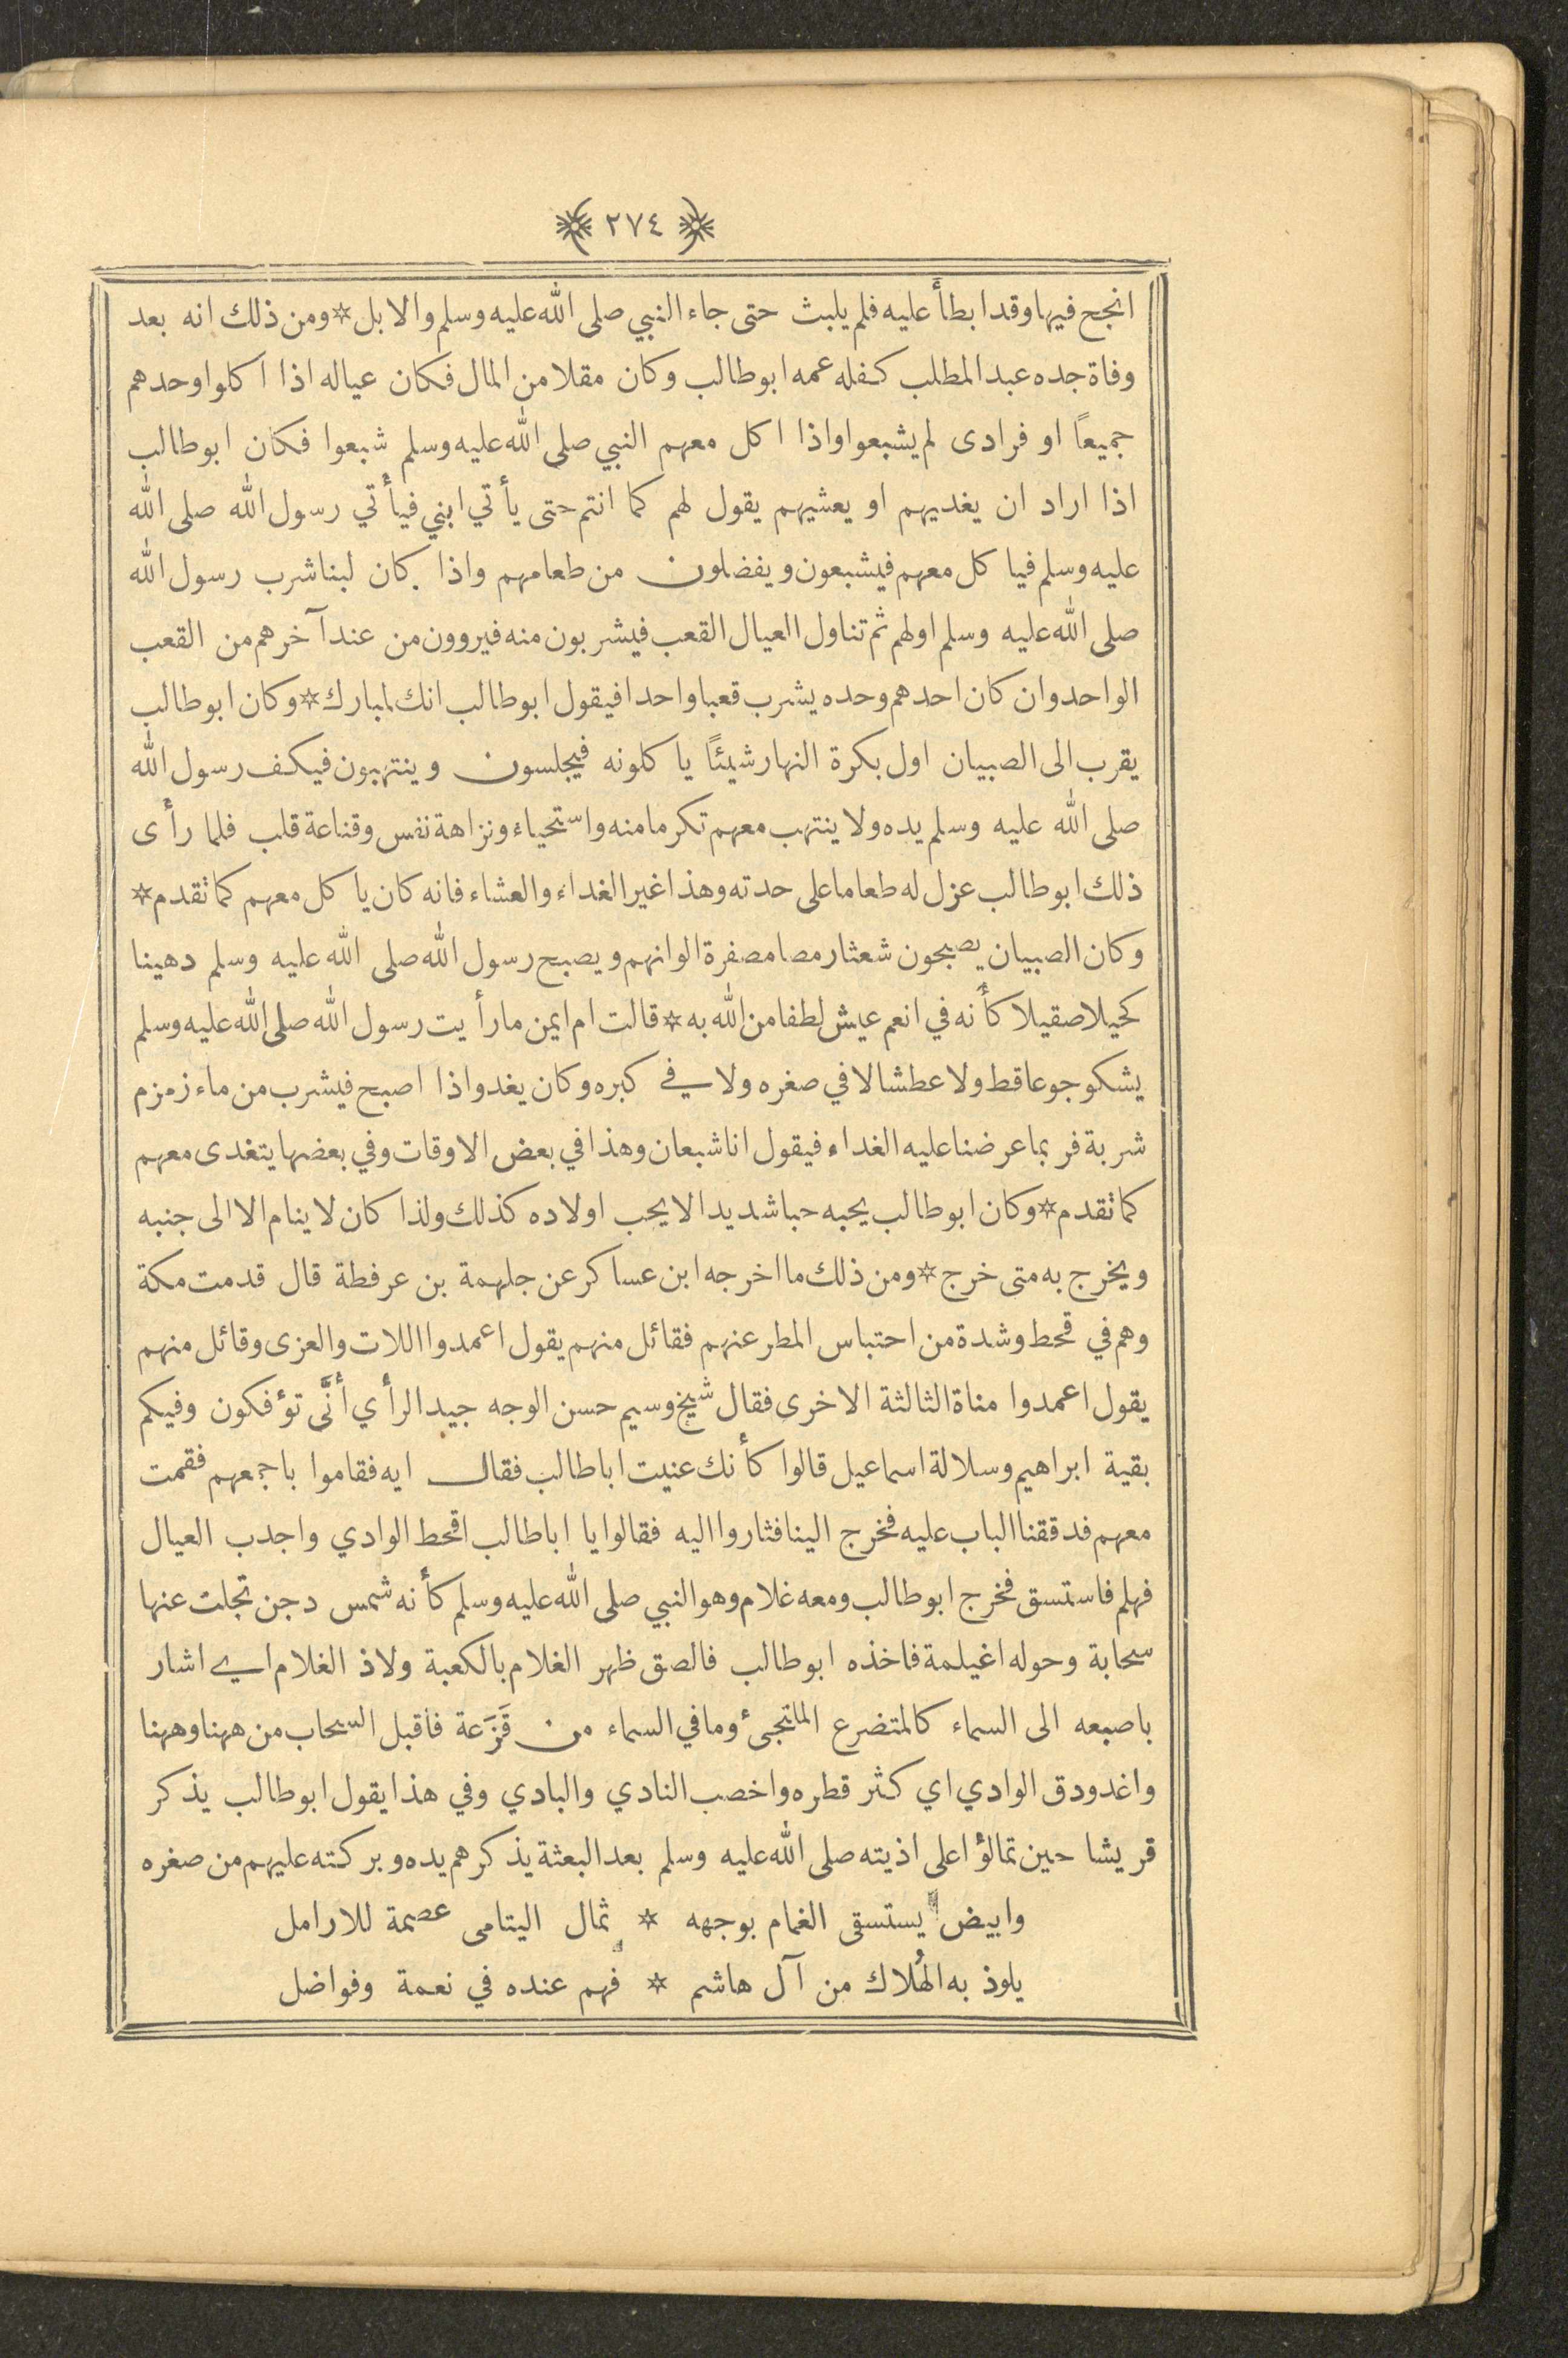 ٢٧٤
انجح فيها وقد ابطأ عليه فلم يلبث حتى جاء النبي صلى الله عليه وسلم والابل * ومن ذلك انه بعد
وفاة جده عبد المطلب كفله عمه ابو طالب وكان مقلا من المال فكان عياله اذا اكلوا وحدهم
جميعاً او فرادى لم يشبعوا واذا اكل معهم النبي صلى الله عليه وسلم شبعوا فكان ابو طالب
اذا اراد ان يغديهم او يعشيهم يقول لهم كما انتم حتى يأتي ابني فيأتي رسول الله صلى الله
عليه وسلم فيا كل معهم فيشبعون ويفضلون من طعامهم واذا كان لبنا شرب رسول الله
صلى الله عليه وسلم اولهم ثم تناول العيال القعب فيشربون منه فيروون من عند آخرهم من القعب
الواحد وان كان احدهم وحده يشرب قعبا واحدا فيقول ابو طالب انك لمبارك * وكان ابو طالب
يقرب الى الصبيان اول بكرة النهار شيئاً يا كلونه فيجلسون وينتهبون فيكف رسول الله
صلى الله عليه وسلم يده ولا ينتهب معهم تكرما منه واستحياء ونزاهة نفس وقناعة قلب فلما رأى
ذلك ابو طالب عزل له طعاما على حدته وهذا غير الغداء والعشاء فانه كان يا كل معهم كما تقدم *
وكان الصبيان يصبحون شعثا رمصا مصفرة الوانهم ويصبح رسول الله صلى الله عليه وسلم دهينا
كحيلا صقيلا كأنه في انعم عيش لطفا من الله به * قالت ام ايمن ما رأيت رسول الله صلى الله عليه وسلم
يشكو جوعا قط ولا عطشا لا في صغره ولا في كبره وكان يغدو اذا اصبح فيشرب من ماء زمزم
شربة فربما عرضنا عليه الغداء فيقول انا شبعان وهذا في بعض الاوقات وفي بعضها يتغدى معهم
كما تقدم * وكان ابو طالب يحبه حبا شديدا لا يحب اولاده كذلك ولذا كان لا ينام الا الى جنبه
ويخرج به متى خرج * ومن ذلك ما اخرجه ابن عساكر عن جلهمة بن عرفطة قال قدمت مكة
وهم في قحط وشدة من احتباس المطر عنهم فقائل منهم يقول اعمدوا اللات والعزى وقائل منهم
يقول اعمدوا مناة الثالثة الاخرى فقال شيخ وسيم حسن الوجه جيد الرأي أنَّى تؤفكون وفيكم
بقية ابراهيم وسلالة اسماعيل قالوا كأنك عنيت ابا طالب فقال ايه فقاموا باجمعهم فقمت
معهم فدققنا الباب عليه فخرج الينا فثاروا اليه فقالوا يا ابا طالب اقحط الوادي واجدب العيال
فهلم فاستسق فخرج ابو طالب ومعه غلام وهو النبي صلى الله عليه وسلم كأنه شمس دجن تجلت عنها
سحابة وحوله اغيلمة فاخذه ابو طالب فالصق ظهر الغلام بالكعبة ولاذ الغلام اي اشار
باصبعه الى السماء كالمتضرع الملتجئ وما في السماء من قَزَعة فاقبل السحاب من ههنا وههنا
واغدودق الوادي اي كثر قطره واخصب النادي والبادي وفي هذا يقول ابو طالب يذكر
قريشا حين تمالؤا على اذيته صلى الله عليه وسلم بعد البعثة يذكرهم يده وبركته عليهم من صغره
وابيض يستسقى الغمام بوجهه * ثمال اليتامى عصمة للارامل
يلوذ به الهُلاك من آل هاشم * فهم عنده في نعمة وفواضل